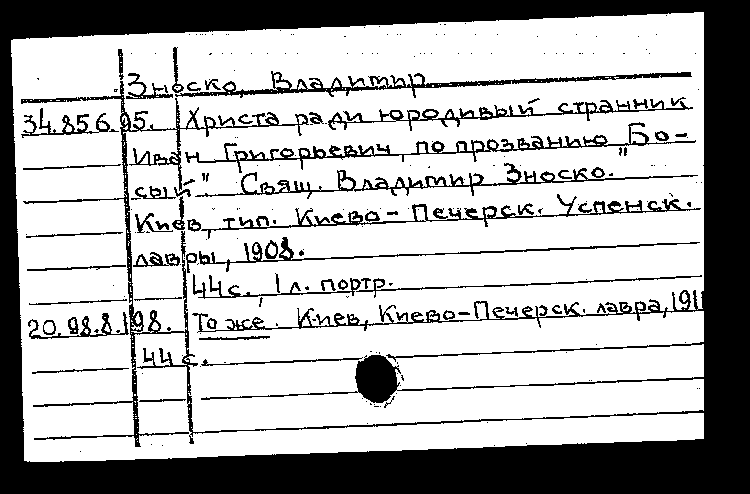 Зноско, Владимир
34.85.6.95. Христа ради юродивый странник
Иван Григорьевич, по прозванию „Бо-
сый". Свящ. Владимир Зноско.
Киев, тип. Киево-Печерск. Успенск.
лавры, 1908.
44 с., 1 л. портр.
20.98.8.198. То же. Киев, Киево-Печерск. лавра, 1911
44 с.